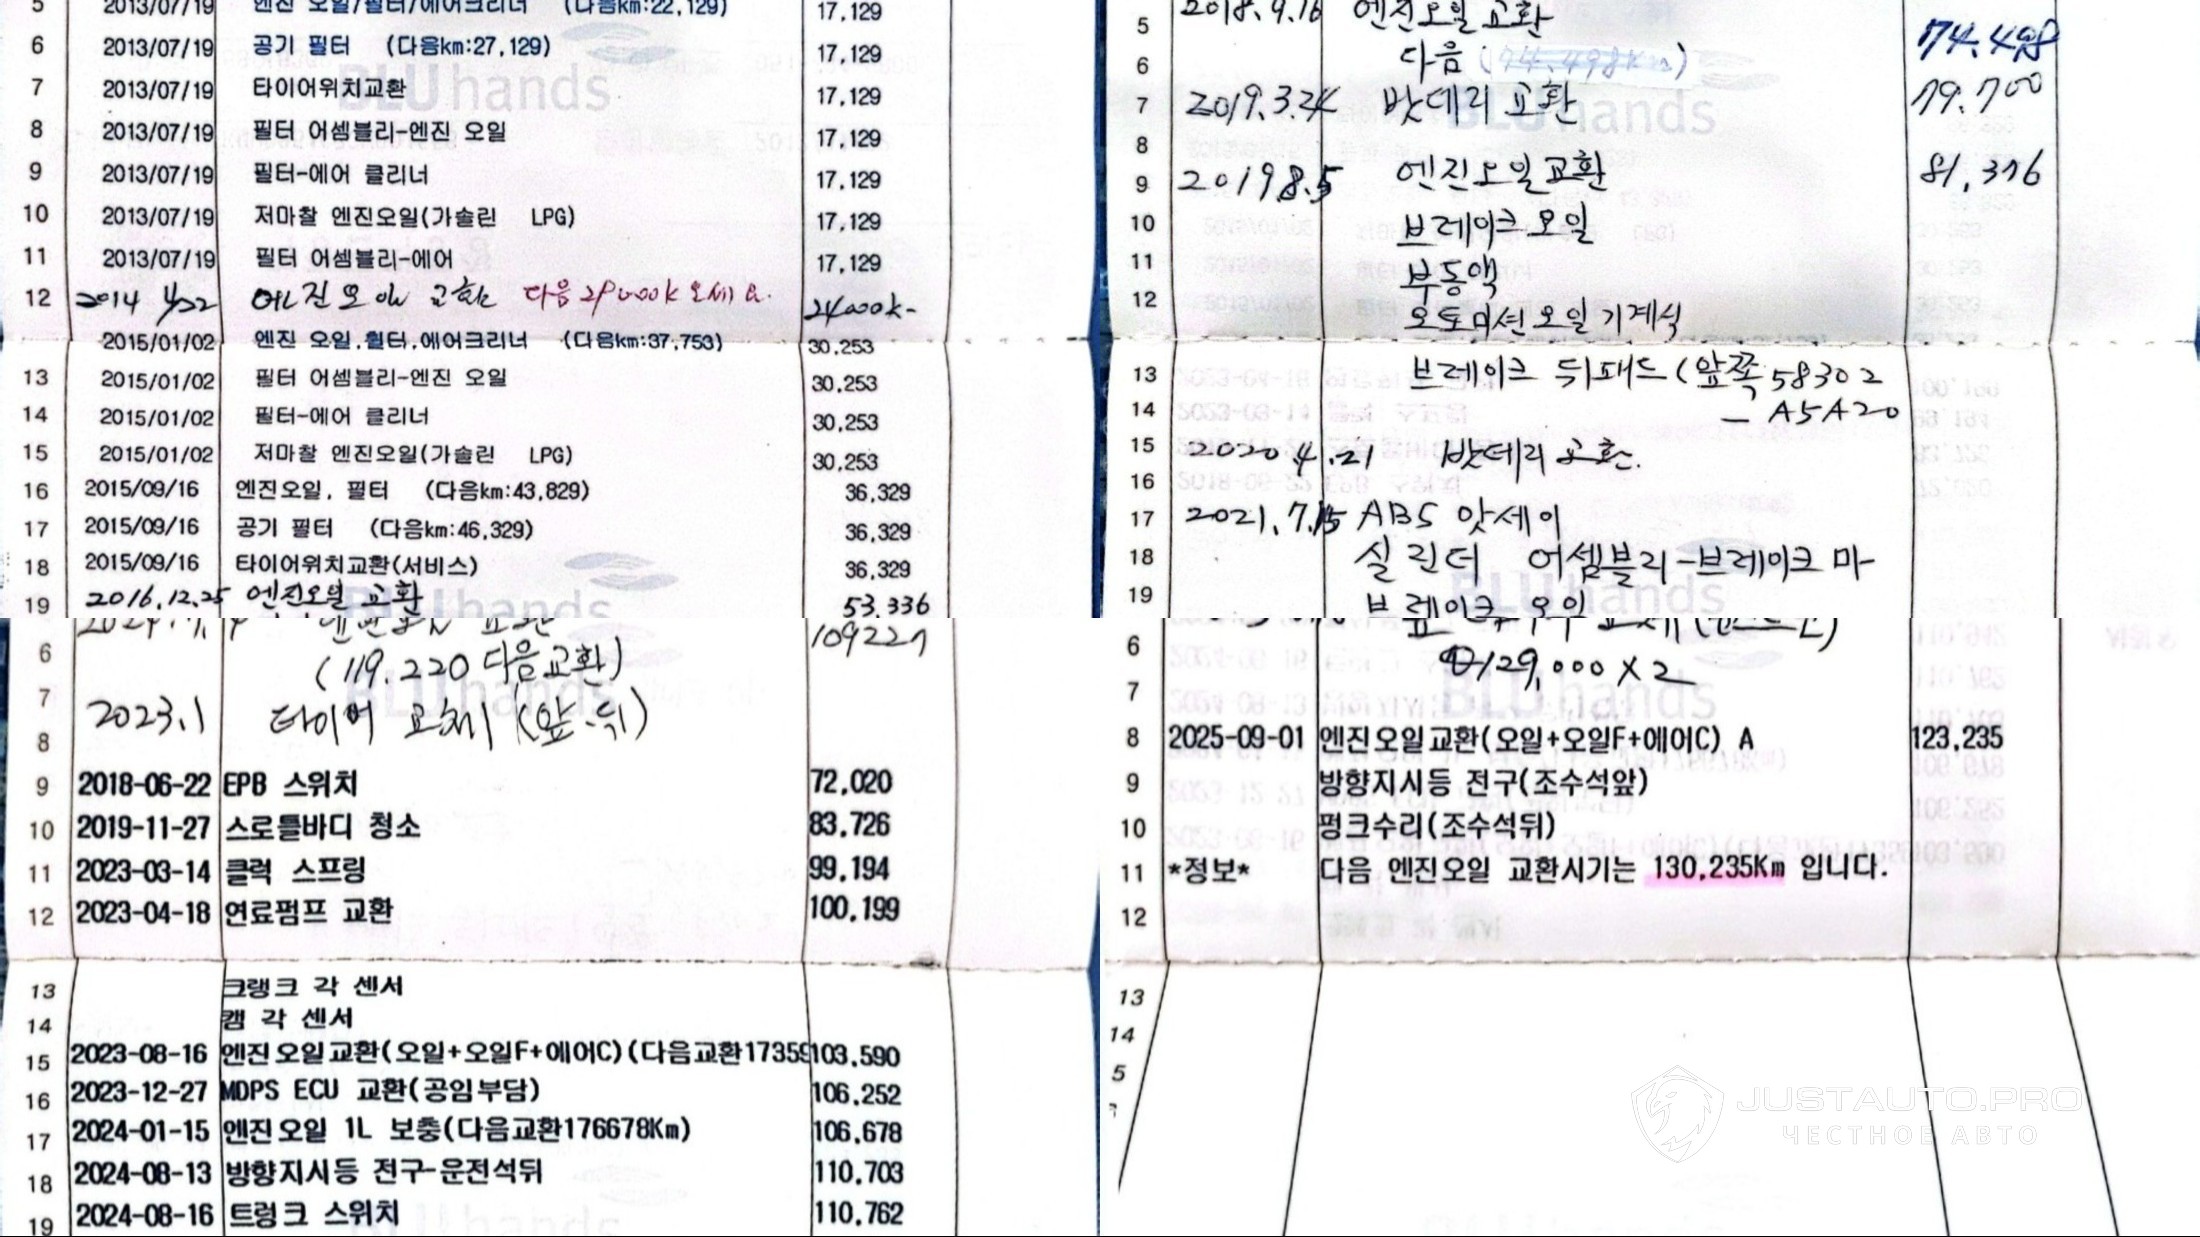 5 엔진 오일/필터/에어크리너 (다음km:22,129) 17,129
6 2013/07/19 공기 필터 (다음km:27,129) 17,129
7 2013/07/19 타이어위치교환 17,129
8 2013/07/19 필터 어셈블리-엔진 오일 17,129
9 2013/07/19 필터-에어 클리너 17,129
10 2013/07/19 저마찰 엔진오일(가솔린 LPG) 17,129
11 2013/07/19 필터 어셈블리-에어 17,129
12 2014 4/22 엔진오일 교환 다음 29000k 오세요. 24000k-
2015/01/02 엔진 오일,휠터,에어크리너 (다음km:37,753) 30,253
13 2015/01/02 필터 어셈블리-엔진 오일 30,253
14 2015/01/02 필터-에어 클리너 30,253
15 2015/01/02 저마찰 엔진오일(가솔린 LPG) 30,253
16 2015/09/16 엔진오일, 필터 (다음km:43,829) 36,329
17 2015/09/16 공기 필터 (다음km:46,329) 36,329
18 2015/09/16 타이어위치교환(서비스) 36,329
19 2016.12.25 엔진오일 교환 53,336
BLUhands
5 2018.9.16 엔진오일교환 74.498
6 다음 (74.498Km)
7 2019.3.24 밧데리 교환 79.700
8
9 2019 8.5 엔진오일교환 81,376
10 브레이크오일
11 부동액
12 오토미션오일기계식
13 브레이크 뒤패드 (앞쪽 58302
14 - A5A20
15 2020 4.21 밧데리 교환.
16
17 2021.7.15 ABS 앗세이
18 실린더 어셈블리-브레이크 마
19 브레이크 오일
BLUhands
109227
6 (119.220 다음교환)
7 2023.1 타이어 교체 (앞.뒤)
8
9 2018-06-22 EPB 스위치 72,020
10 2019-11-27 스로틀바디 청소 83,726
11 2023-03-14 클럭 스프링 99,194
12 2023-04-18 연료펌프 교환 100,199
13 크랭크 각 센서
14 캠 각 센서
15 2023-08-16 엔진오일교환(오일+오일F+에어C)(다음교환17359 103,590
16 2023-12-27 MDPS ECU 교환(공임부담) 106,252
17 2024-01-15 엔진오일 1L 보충(다음교환176678Km) 106,678
18 2024-08-13 방향지시등 전구-운전석뒤 110,703
19 2024-08-16 트렁크 스위치 110,762
BLUhands
6 129,000 X 2
7
8 2025-09-01 엔진오일교환(오일+오일F+에어C) A 123,235
9 방향지시등 전구(조수석앞)
10 펑크수리(조수석뒤)
11 *정보* 다음 엔진오일 교환시기는 130,235Km 입니다.
12
13
14
5
JUSTAUTO.PRO
ЧЕСТНОЕ АВТО